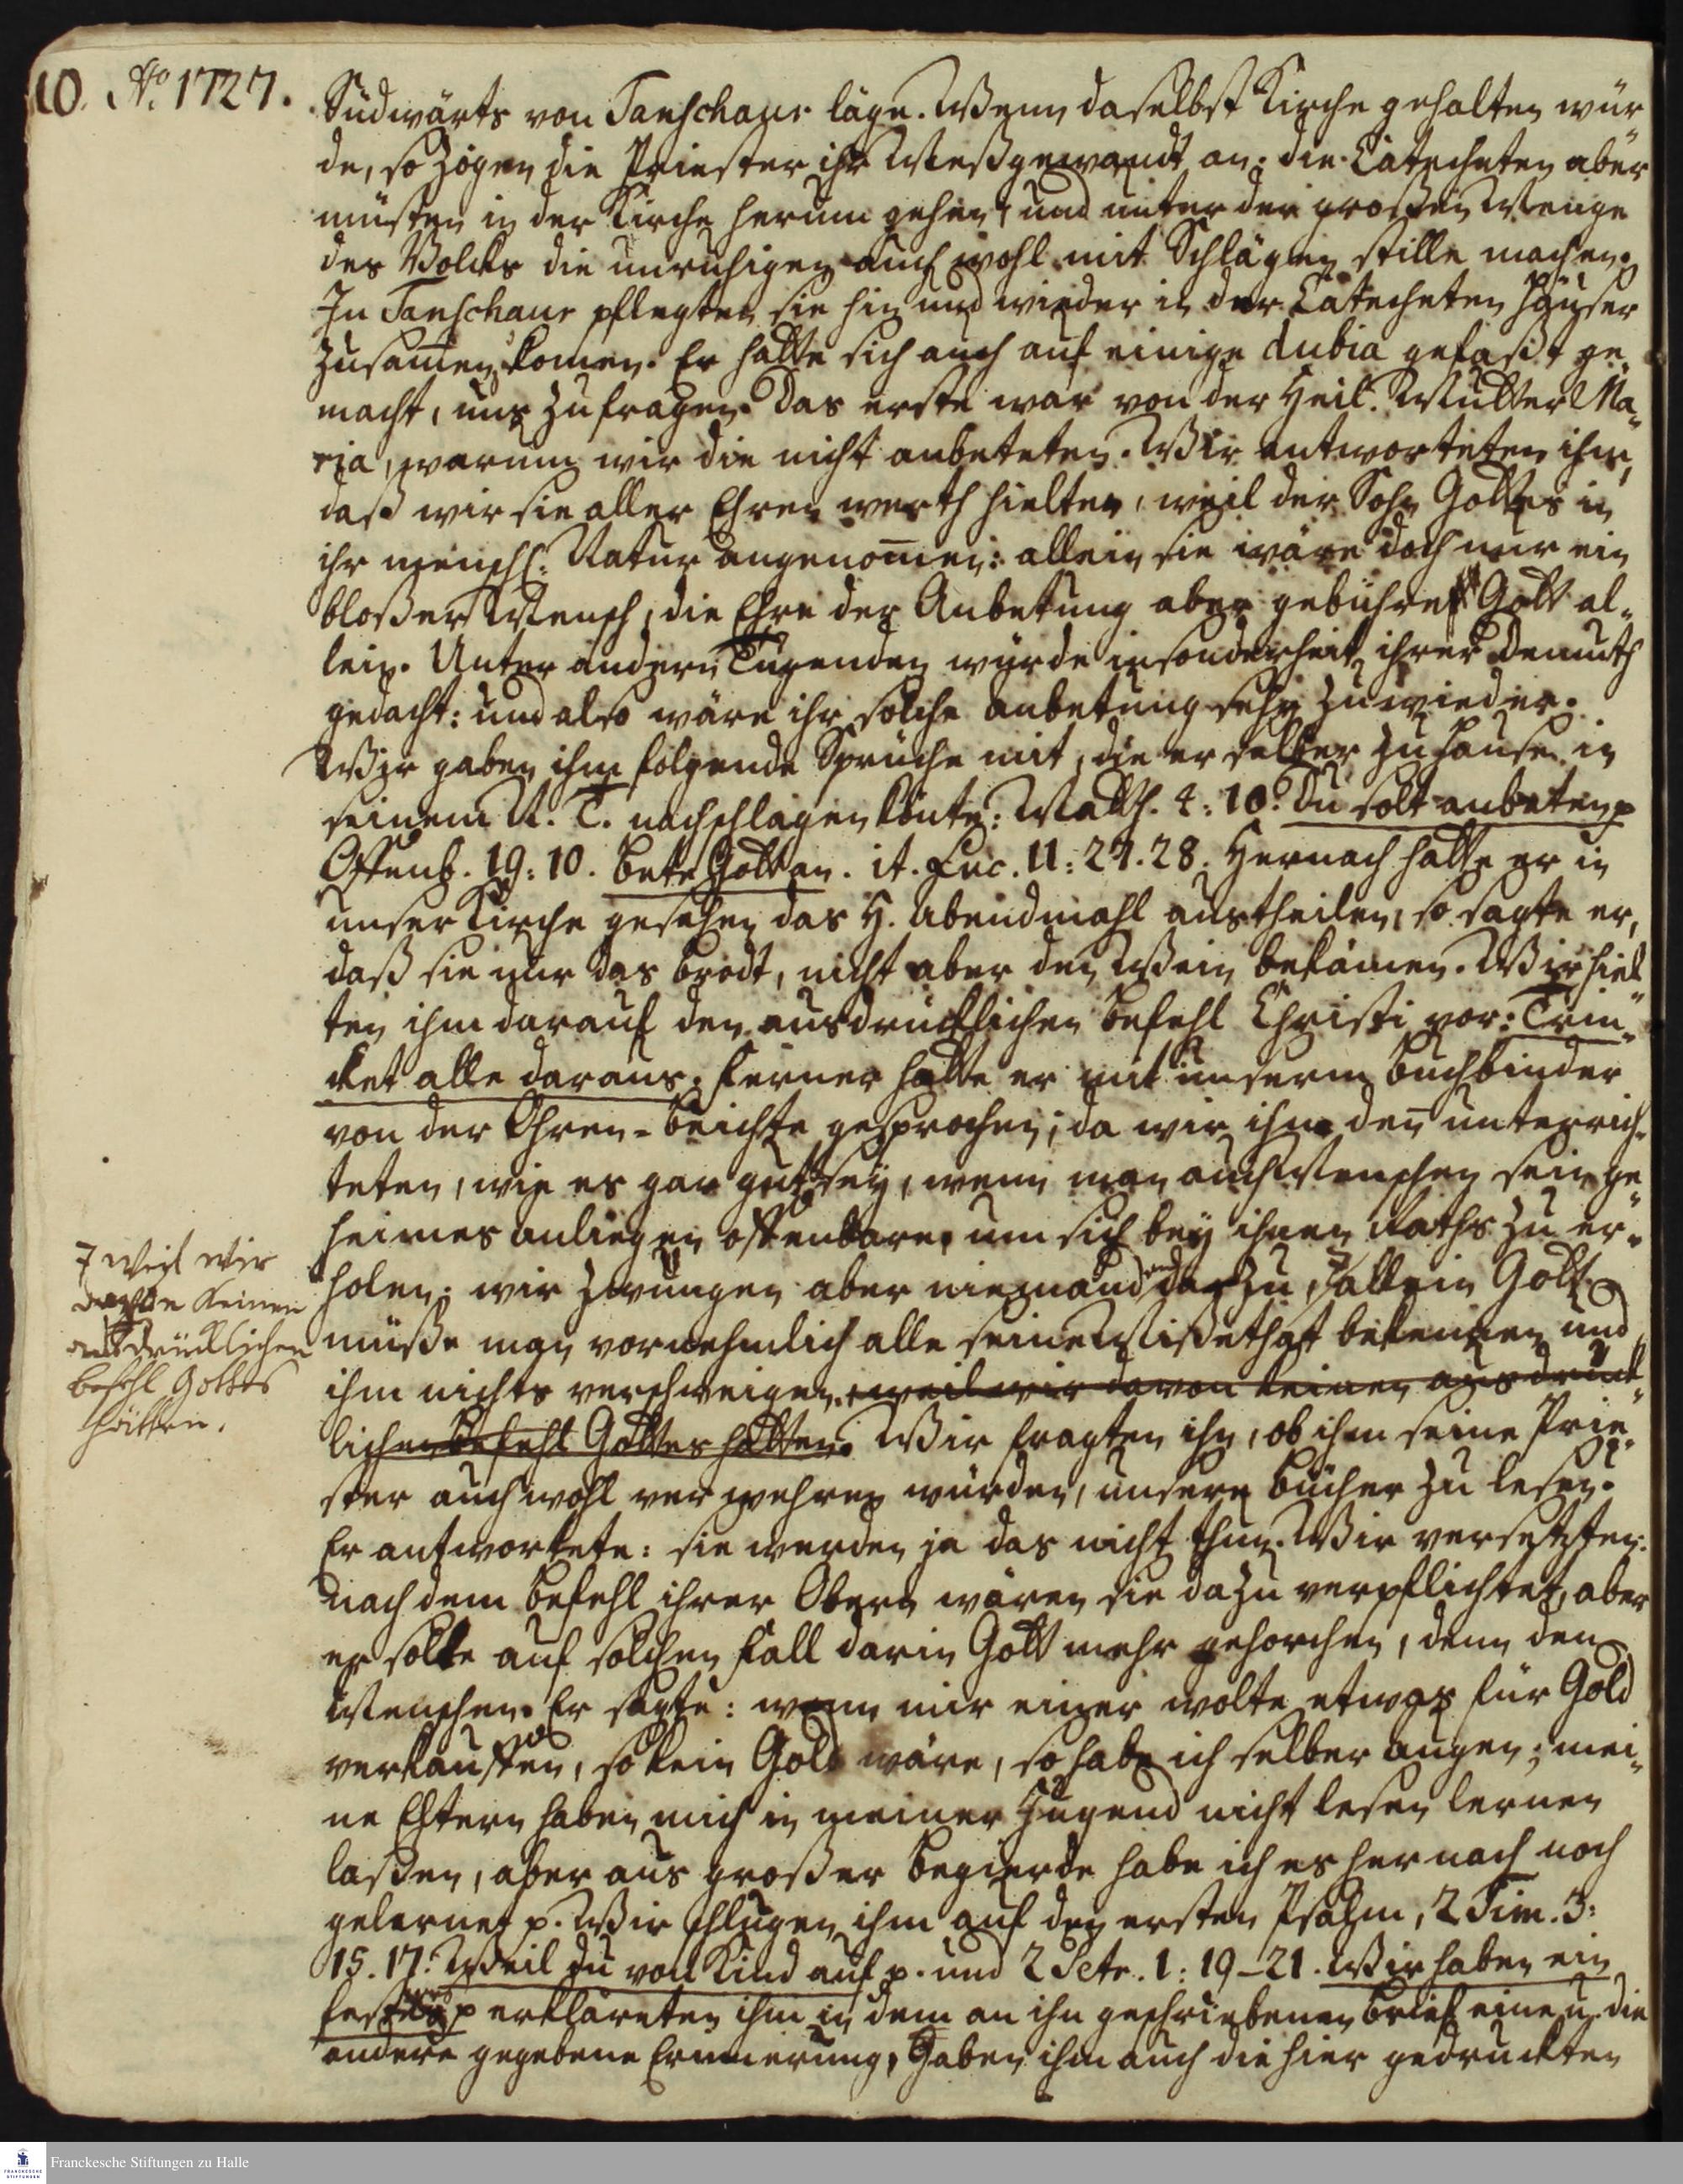 10. Aº. 1727.
Südwärts von Tanschaur läge. Wenn daselbst Kirche gehalten wür
de, so zögen die Priester ihr Meßgewandt an: die Catecheten aber
müsten in der Kirche herum gehen, und unter der großen Menge
des Volcks die unruhigen auch wohl mit Schlägen stille machen.
In Tanschaur pflegten sie hin und wieder in der Catecheten Häuser
zusam̄en kom̄en. Er hatte sich auch auf einige dubia gefaßt ge
macht, uns zu fragen. Das erste war von der Heil. Mutter Ma„
ria, warum wir die nicht anbeteten. Wir antworteten ihm,
daß wir sie aller Ehren werth hielten, weil der Sohn Gottes in
ihr menschl: Natur angenom̄en: allein sie wäre doch nur ein
bloßer Mensch, die Ehre der Anbetung aber gebühre Gott al„
lein. Unter andern Tugenden würde insonderheit ihrer Demuth
gedacht: und also wäre ihr solche anbetung sehr zuwieder.
Wir gaben ihm folgende Sprüche mit, die er selber zu hause in
seinem N. T. nachschlagen könte: Matth. 4: 10. Du solt anbeten p
Offenb. 19: 10. Bete Gott an. it. Luc. 11: 27. 28. Hernach hatte er in
unser Kirche gesehen das H. Abendmahl austheilen, so sagte er,
daß sie nur das Brodt, nicht aber den Wein bekämen. Wir hiel„
ten ihm darauf den ausdrücklichen Befehl Christi vor: Trin„
cket alle daraus. Ferner hatte er mit unserm Buchbinder
von der Ohren-Beichte gesprochen; da wir ihn den̄ unterrich„
teten, wie es gar gut sey, wenn man auch Menschen sein ge„
heimes anliegen offenbare, um sich bey ihnen Raths zu er„
holen; wir zwungen aber niemand dazu, allein Gott
müße man vornehmlich alle seine Mißethat bekennen und
ihm nichts verschweigen. weil wir davon keinen ausdrück„
lichen Befehl Gottes hätten. Wir fragten ihn, ob ihm seine Prie„
ster auch wohl verwehren würden, unsere Bücher zu lesen.
Er antwortete: sie werden ja das nicht thun. Wir versetzten:
nach dem Befehl ihrer Obern wären sie dazu verpflichtet, aber
er solte auf solchen Fall darin Gott mehr gehorchen, denn den
Menschen. Er sagte: wenn mir einer wolte etwas für Gold
verkauffen, so kein Gold wäre, so habe ich selber augen; mei„
ne Eltern haben mich in meiner Jugend nicht lesen lernen
laßen, aber aus großer Begierde habe ich es hernach noch
gelernet p. Wir schlugen ihm auf den ersten Psalm, 2 Tim. 3:
15. 17. Weil du von Kind auf p. und 2 Petr. 1: 19–21. Wir haben ein
festes p erkläreten ihm in dem an ihn geschriebenen Brief eine u. die
andere gegebene Erinnerung, Gaben ihm auch die hier gedruckten
weil wir
keinen
ausdrücklichen
befehl Gottes
hätten.
Franckesche Stiftungen zu Halle